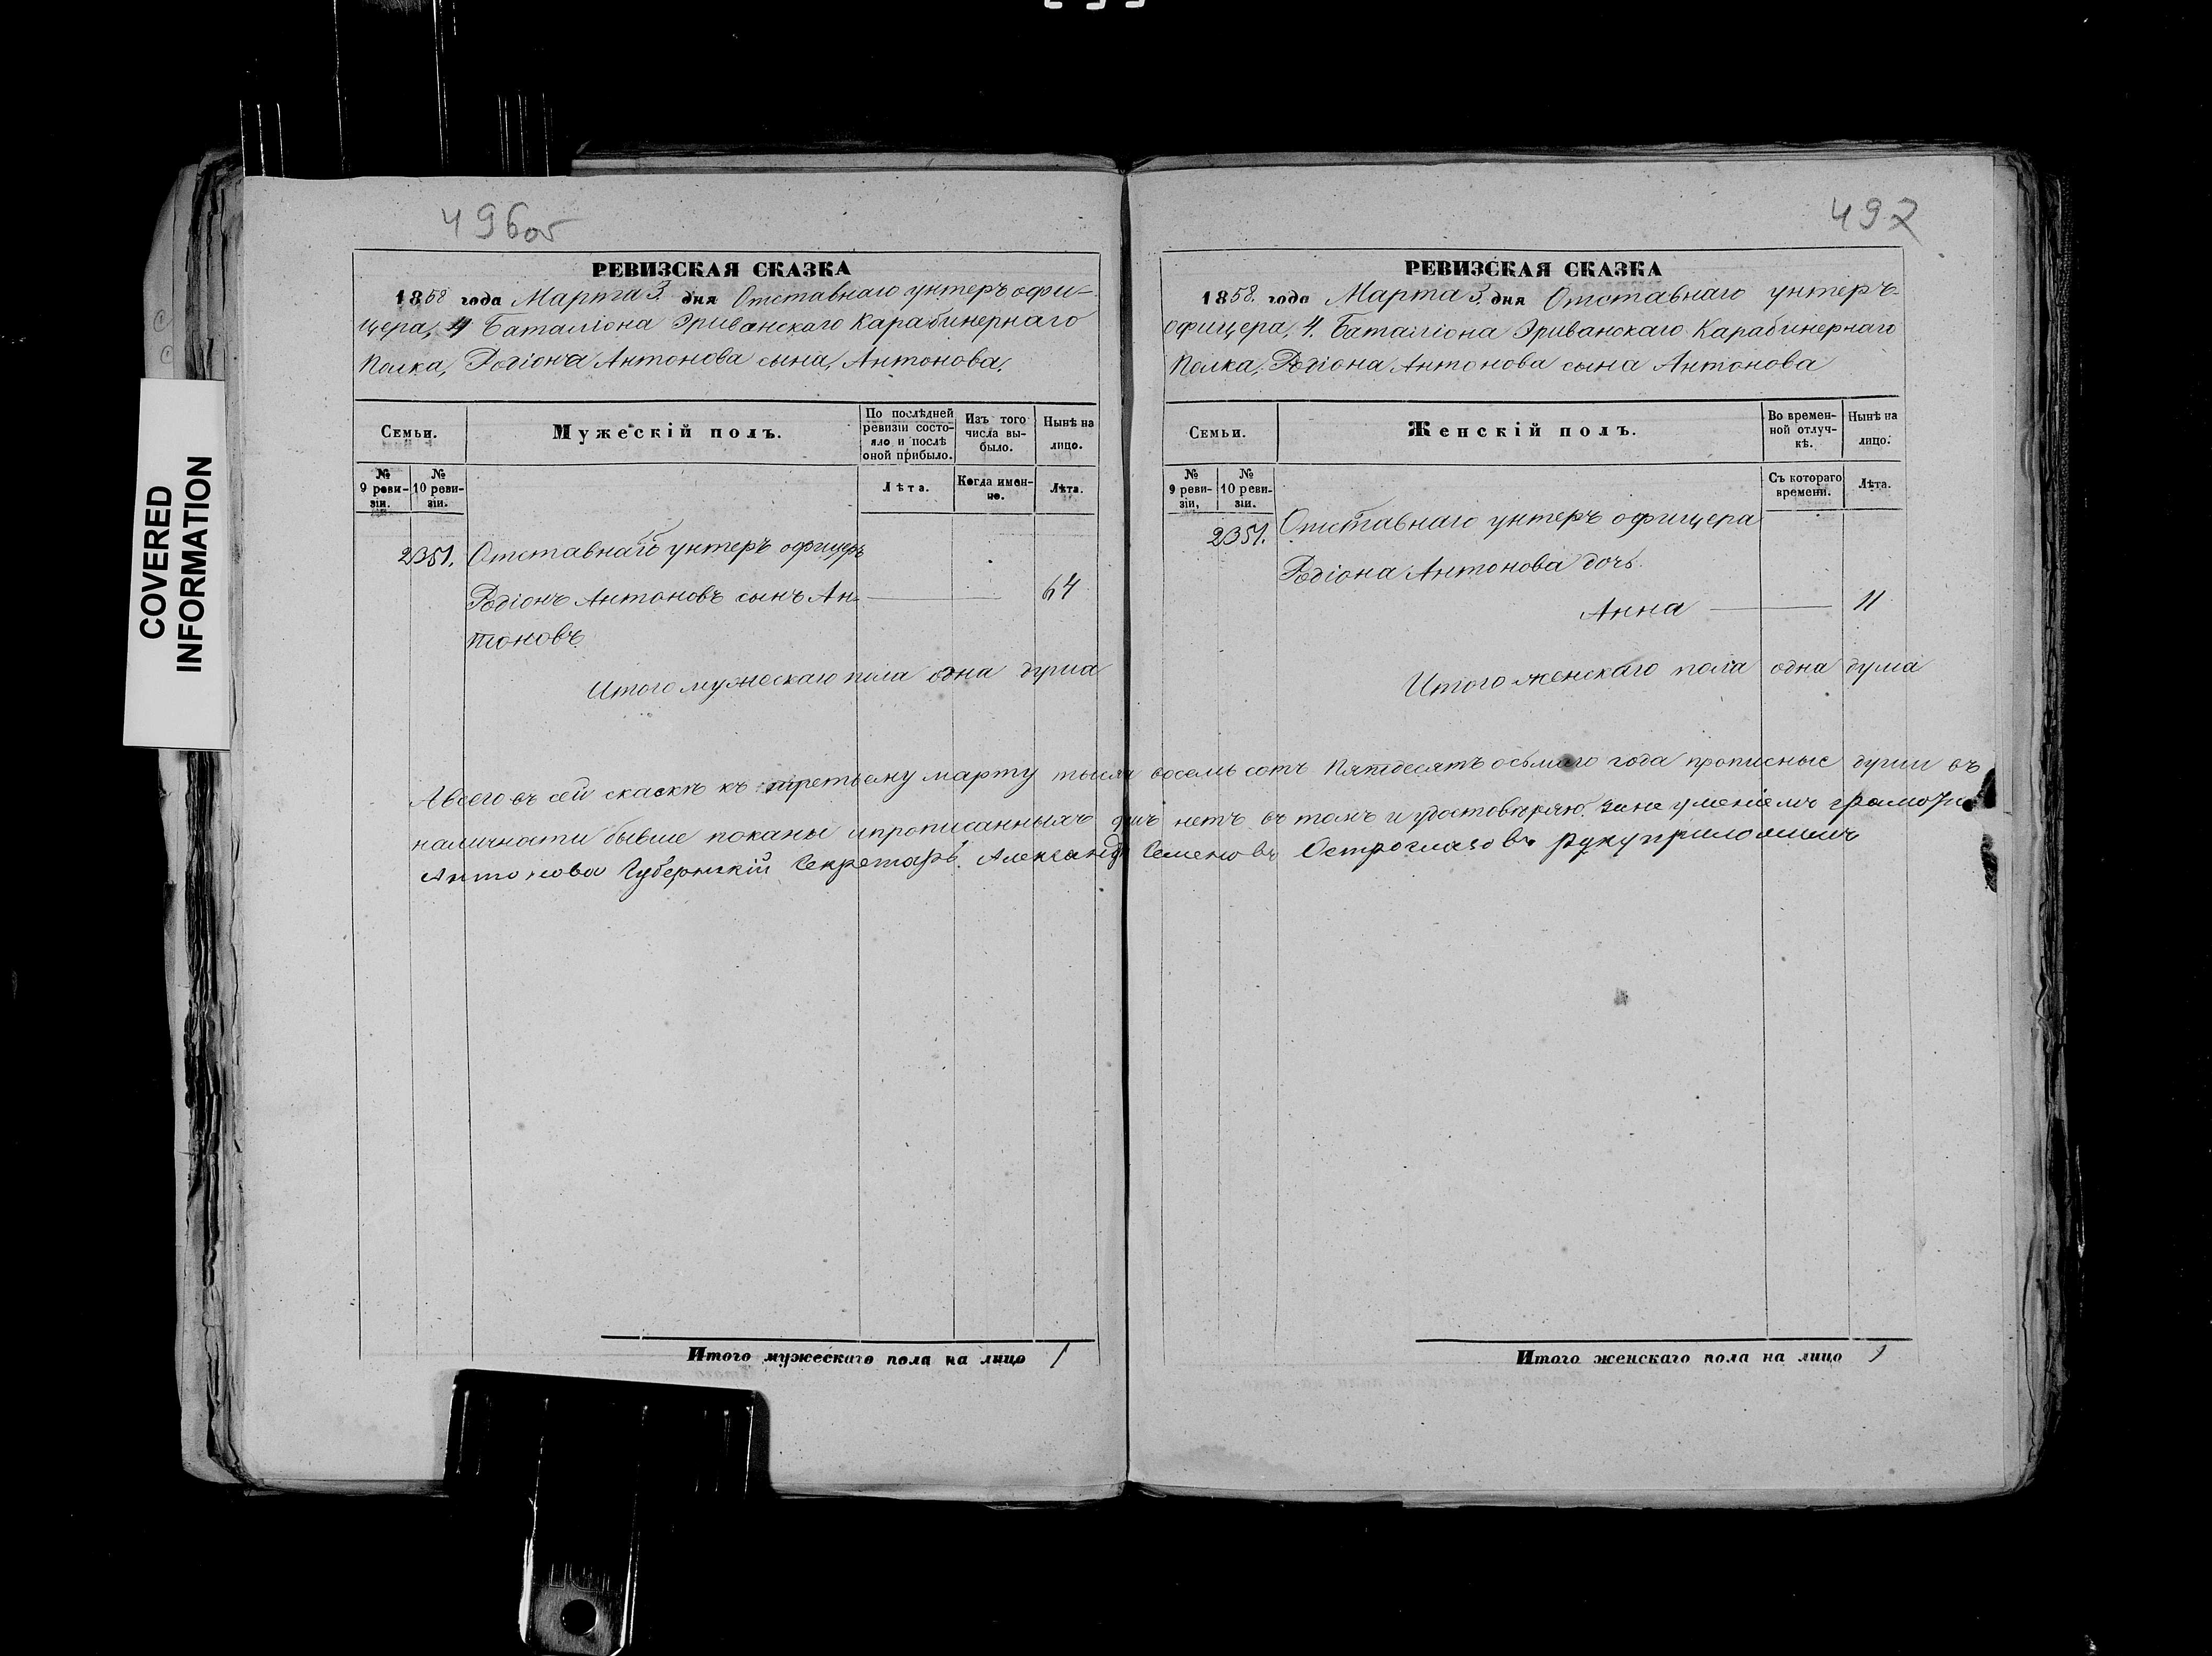 COVERED
INFORMATION
496об
РЕВИЗСКАЯ СКАЗКА
1858 года Марта 3. дня Отставнаго унтеръ офи-
цера, 4 Баталіона Эриванскаго Карабинернаго
Полка, Родіона Антонова сына, Антонова.
Семьи.
Мужескій полъ.
По послѣдней ревизіи состояло и послѣ оной прибыло.
Изъ того числа выбыло.
Нынѣ на лицо.
№ 9 ревизіи.
№ 10 ревизіи.
Лѣта.
Когда именно.
Лѣта.
2351. Отставнаго унтеръ офицеръ
Родіонъ Антоновъ сынъ Ан- 64
тоновъ
Итого мужескаго пола одна душа
Итого мужескаго пола на лицо 1
497
РЕВИЗСКАЯ СКАЗКА
1858. года Марта 3. дня Отставнаго унтеръ-
офицера, 4. Баталіона Эриванскаго Карабинернаго
Полка, Родіона Антонова сына Антонова
Семьи.
Женскій полъ.
Во временной отлучкѣ.
Нынѣ на лицо.
№ 9 ревизіи,
№ 10 ревизіи.
Съ котораго времени.
Лѣта.
2351. Отставнаго унтеръ офицера
Родіона Антонова дочь.
Анна 11
Итого женскаго пола одна душа
А всего въ сей сказкѣ къ третьему марту тысяч восемь сотъ Пятдесятъ осьмаго года прописные души въ
наличности бывше показны ипрописанныхъ душъ нетъ въ томъ и удостоверяю. За не уменіемъ грамоте
Антонова Губернскій Секретарь. Александръ Семеновъ Остроглазовъ руку приложилъ
Итого женскаго пола на лицо 1